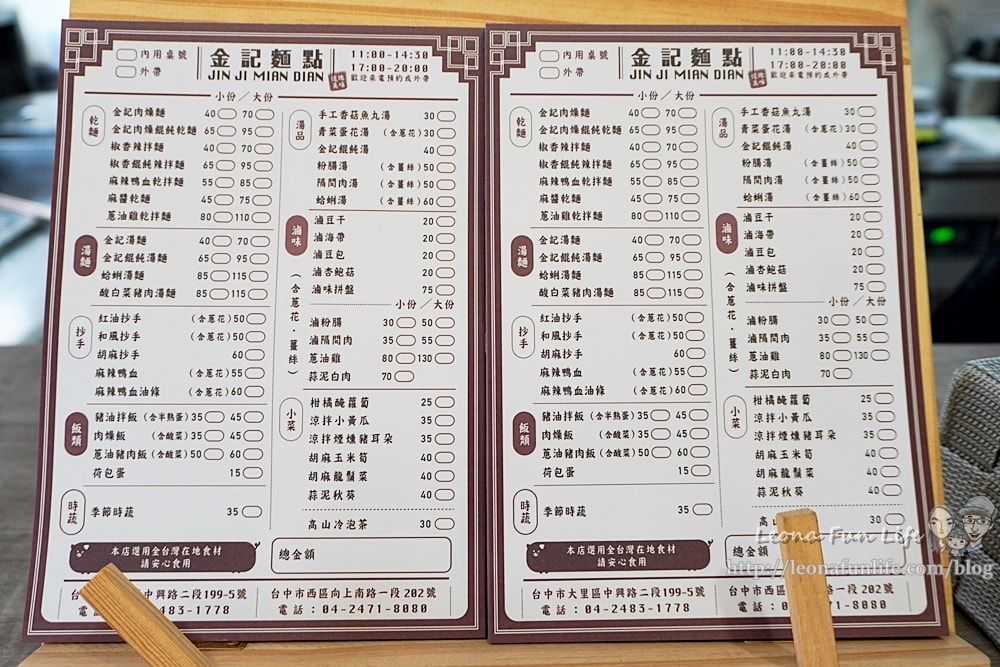 內用桌號
外帶
金記麵點
JIN JI MIAN DIAN
道地美味
11:00-14:30
17:00-20:00
歡迎來電預約或外帶
小份／大份
乾麵
金記肉燥麵 40 70
金記肉燥餛飩乾麵 65 95
椒香辣拌麵 40 70
椒香餛飩辣拌麵 65 95
麻辣鴨血乾拌麵 55 85
麻醬乾麵 45 75
蔥油雞乾拌麵 80 110
湯麵
金記湯麵 40 70
金記餛飩湯麵 65 95
蛤蜊湯麵 85 115
酸白菜豬肉湯麵 85 115
抄手
紅油抄手 (含蔥花) 50
和風抄手 (含蔥花) 50
胡麻抄手 60
麻辣鴨血 (含蔥花) 55
麻辣鴨血油條 (含蔥花) 60
飯類
豬油拌飯 (含半熟蛋) 35 45
肉燥飯 (含酸菜) 35 45
蔥油豬肉飯 (含酸菜) 50 60
荷包蛋 15
時蔬
季節時蔬 35
湯品
手工香菇魚丸湯 30
青菜蛋花湯 (含蔥花) 30
金記餛飩湯 40
粉腸湯 (含薑絲) 50
隔間肉湯 (含薑絲) 50
蛤蜊湯 (含薑絲) 60
滷味（含蔥花·薑絲）
滷豆干 20
滷海帶 20
滷豆包 20
滷杏鮑菇 20
滷味拼盤 75
小份／大份
滷粉腸 30 50
滷隔間肉 35 55
蔥油雞 80 130
蒜泥白肉 70
小菜
柑橘醃蘿蔔 25
涼拌小黃瓜 35
涼拌煙燻豬耳朵 35
胡麻玉米筍 40
胡麻龍鬚菜 40
蒜泥秋葵 40
高山冷泡茶 30
本店選用全台灣在地食材
請安心食用
總金額
台中 中興路二段199-5號
電 2483-1778
台中市西區向上南路一段 202號
電話：04-2471-8080
內用桌號
外帶
金記麵點
JIN JI MIAN DIAN
道地美味
11:00-14:30
17:00-20:00
歡迎來電預約或外帶
小份／大份
乾麵
金記肉燥麵 40 70
金記肉燥餛飩乾麵 65 95
椒香辣拌麵 40 70
椒香餛飩辣拌麵 65 95
麻辣鴨血乾拌麵 55 85
麻醬乾麵 45 75
蔥油雞乾拌麵 80 110
湯麵
金記湯麵 40 70
金記餛飩湯麵 65 95
蛤蜊湯麵 85 115
酸白菜豬肉湯麵 85 115
抄手
紅油抄手 (含蔥花) 50
和風抄手 (含蔥花) 50
胡麻抄手 60
麻辣鴨血 (含蔥花) 55
麻辣鴨血油條 (含蔥花) 60
飯類
豬油拌飯 (含半熟蛋) 35 45
肉燥飯 (含酸菜) 35 45
蔥油豬肉飯 (含酸菜) 50 60
荷包蛋 15
時蔬
季節時蔬 35
湯品
手工香菇魚丸湯 30
青菜蛋花湯 (含蔥花) 30
金記餛飩湯 40
粉腸湯 (含薑絲) 50
隔間肉湯 (含薑絲) 50
蛤蜊湯 (含薑絲) 60
滷味（含蔥花·薑絲）
滷豆干 20
滷海帶 20
滷豆包 20
滷杏鮑菇 20
滷味拼盤 75
小份／大份
滷粉腸 30 50
滷隔間肉 35 55
蔥油雞 80 130
蒜泥白肉 70
小菜
柑橘醃蘿蔔 25
涼拌小黃瓜 35
涼拌煙燻豬耳朵 35
胡麻玉米筍 40
胡麻龍鬚菜 40
蒜泥秋葵 40
高山冷泡茶 30
本店選用全台灣在地食材
請安心食用
總金額
台中市大里區中興路二段199-5號
電話：04-2483-1778
台中市西 一段 202號
電話：04-2 -8080
Leona Fun Life
http://leonafunlife.com/blog